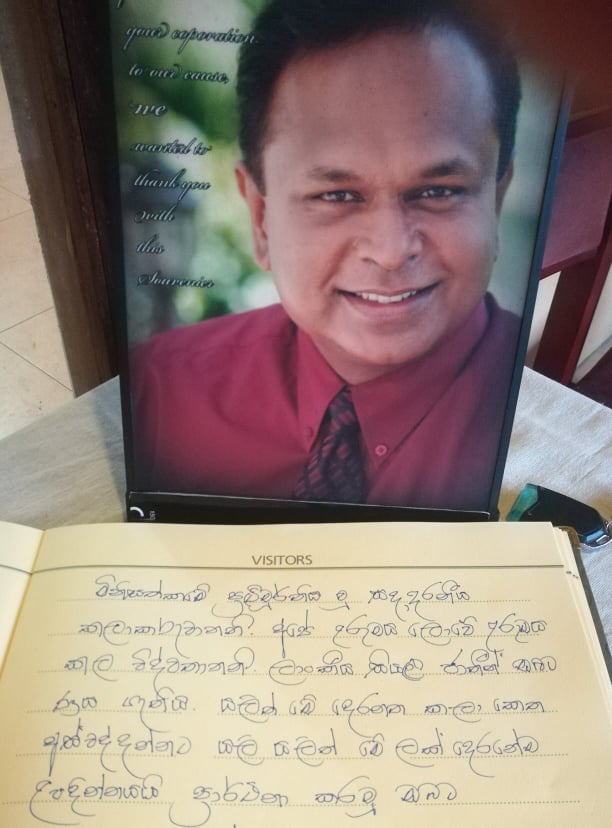 your coporation
to our cause,
we
wanted to
thank you
with
this
Souvenier
VISITORS
මිනිසත්කමේ ප්‍රතිමූර්තිය වූ සදාදරණීය
කලාකරුවාණනි. අපේ උරුමය ලොවේ උරුමය
කල විද්වතාණනි. ලාංකීය සියලු ජාතීන් ඔබට
ණය ගැතිය. යලිත් මේ දෙරනත කලා කෙත
අස්වද්දන්නට යලි යලිත් මේ ලක් දෙරණේම
උපදින්නයයි ප්‍රාර්ථනා කරමු ඔබට